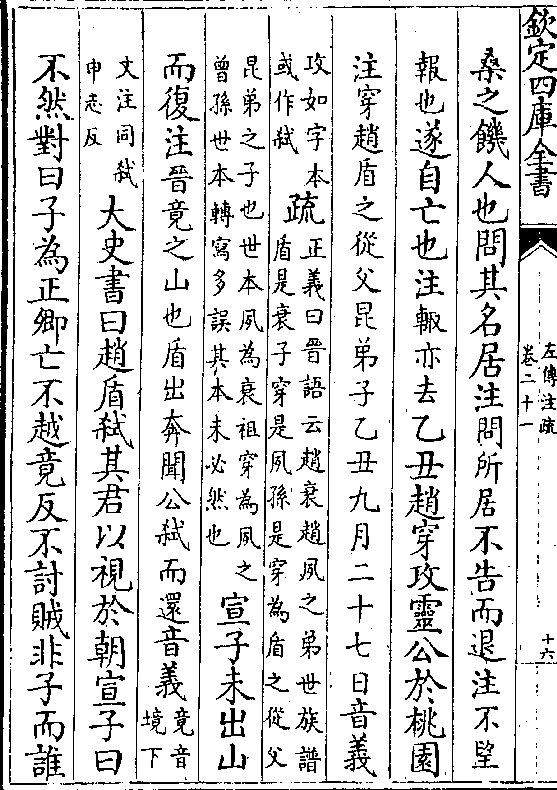 欽定四庫全書
左傳注疏
卷二十一
十六
桑之饑人也問其名居注問所居不告而退注不望
報也遂自亡也注輒亦去乙丑趙穿攻靈公於桃園
注穿趙盾之從父昆弟子乙丑九月二十七日音義
攻如字本
或作弑
疏
正義曰晉語云趙衰趙夙之弟世族譜
盾是衰子穿是夙孫是穿為盾之從父
昆弟之子也世本夙為衰祖穿為夙之
曾孫世本轉寫多誤其本未必然也
宣子未出山
而復注晉竟之山也盾出奔聞公弑而還音義
竟音
境下
文注同弑
申志反
大史書曰趙盾弑其君以視於朝宣子曰
不然對曰子為正卿亡不越竟反不討賊非子而誰